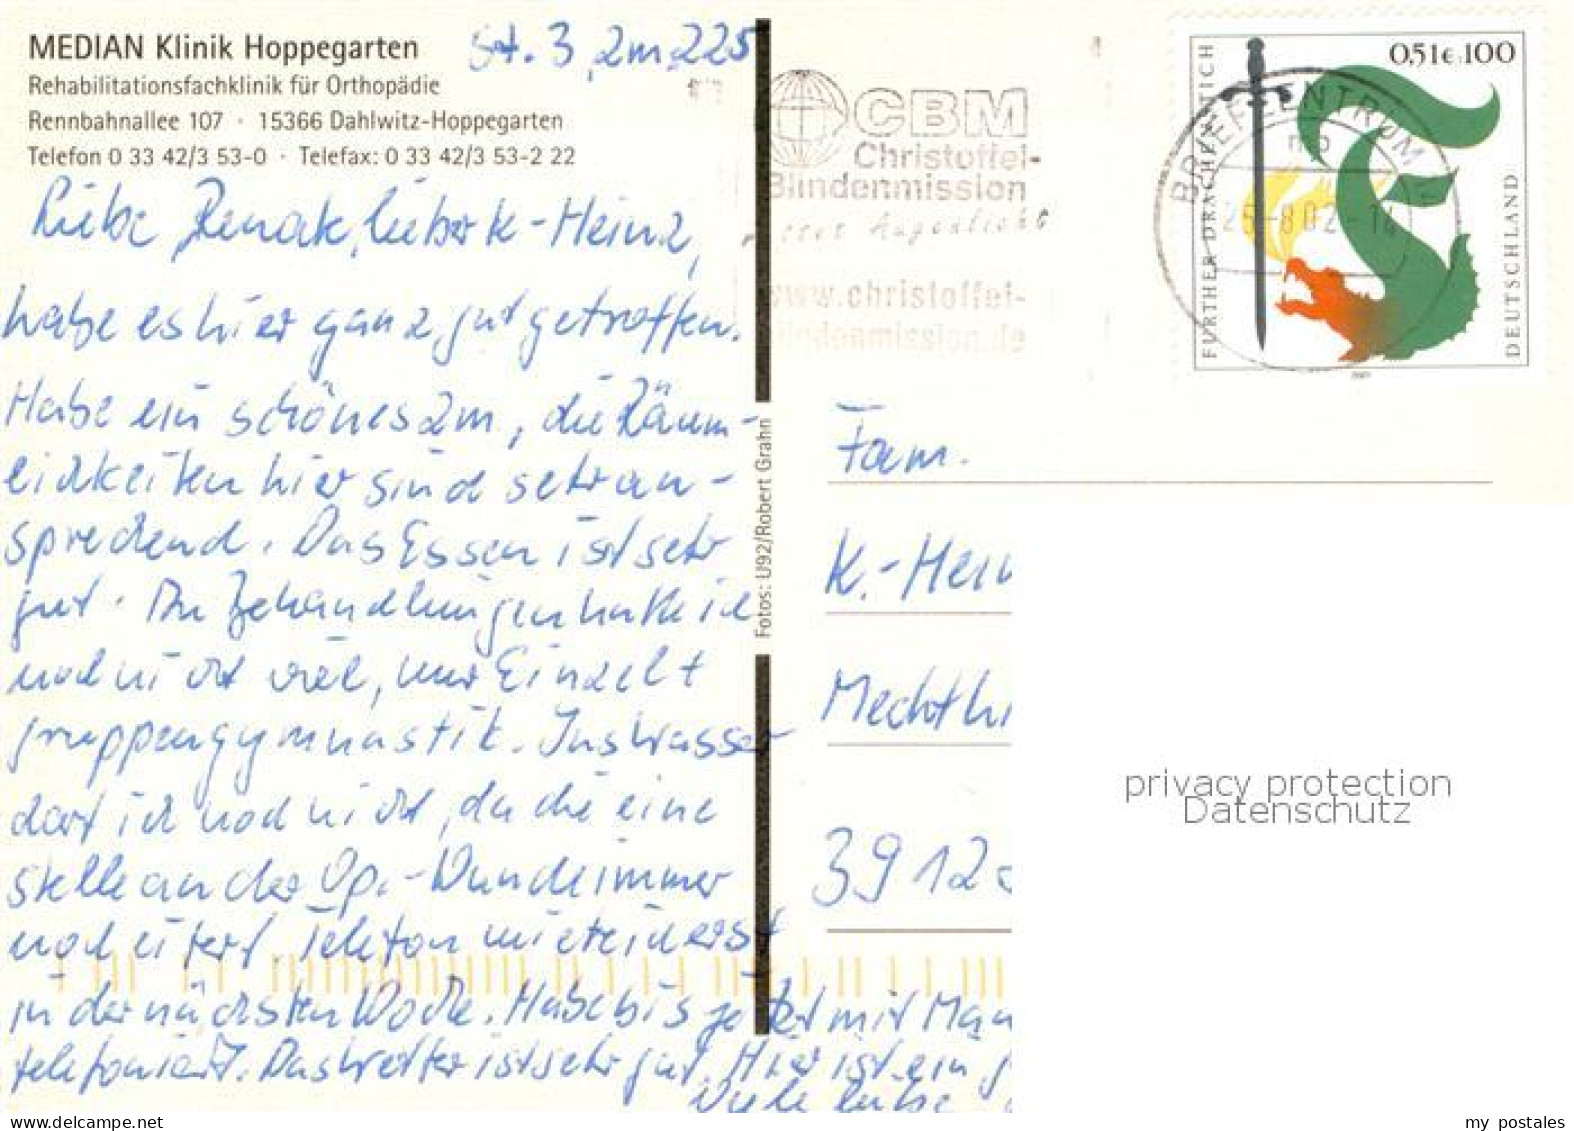 MEDIAN Klinik Hoppegarten
St. 3, Zm 225
Rehabilitationsfachklinik für Orthopädie
Rennbahnallee 107 · 15366 Dahlwitz-Hoppegarten
Telefon 0 33 42/3 53-0 · Telefax: 0 33 42/3 53-2 22
Liebe Renate, lieber K-Heinz,
habe es hier ganz gut getroffen.
Habe ein schönes Zm, die Räum-
lichkeiten hier sind sehr an-
sprechend. Das Essen ist sehr
gut. An Behandlungen hatte ich
noch nicht viel, nur Einzel +
gruppengymnastik. Ins Wasser
darf ich noch nicht, da die eine
stelle an der Op.-Wunde immer
noch eitert. Telefon miete ich erst
in der nächsten Woche. Habe bis jetzt mit
telefoniert. Das Wetter ist sehr gut. Hier ist ein
Viele liebe
Fotos: U92/Robert Grahn
CBM
Christoffel-
Blindenmission
rettet Augenlicht
www.christoffel-
blindenmission.de
BRIEFZENTRUM
mb
-8.02-14
0,51€ 100
FURTHER DRACHENSTICH
DEUTSCHLAND
2001
Fam.
K.-Hein
3912
privacy protection
Datenschutz
delcampe.net
my postales